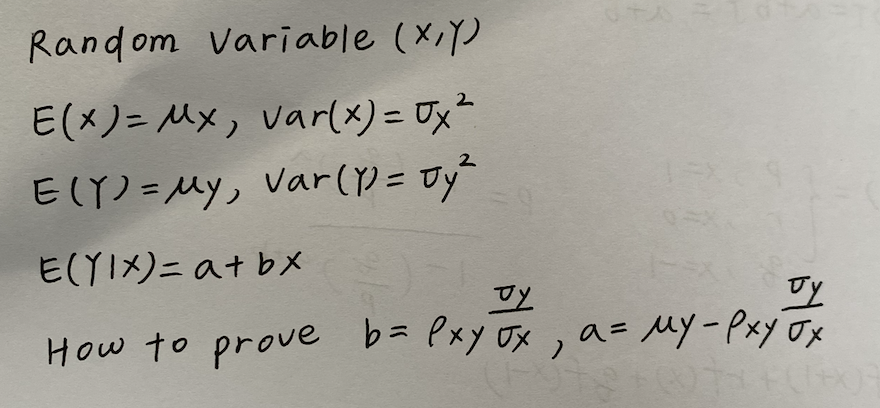 Random variable (X,Y)
E(X)=μx, Var(X)=σx²
E(Y)=μy, Var(Y)=σy²
E(Y|X)=a+bX
How to prove b=ρxy σy/σx, a=μy-ρxy σy/σx